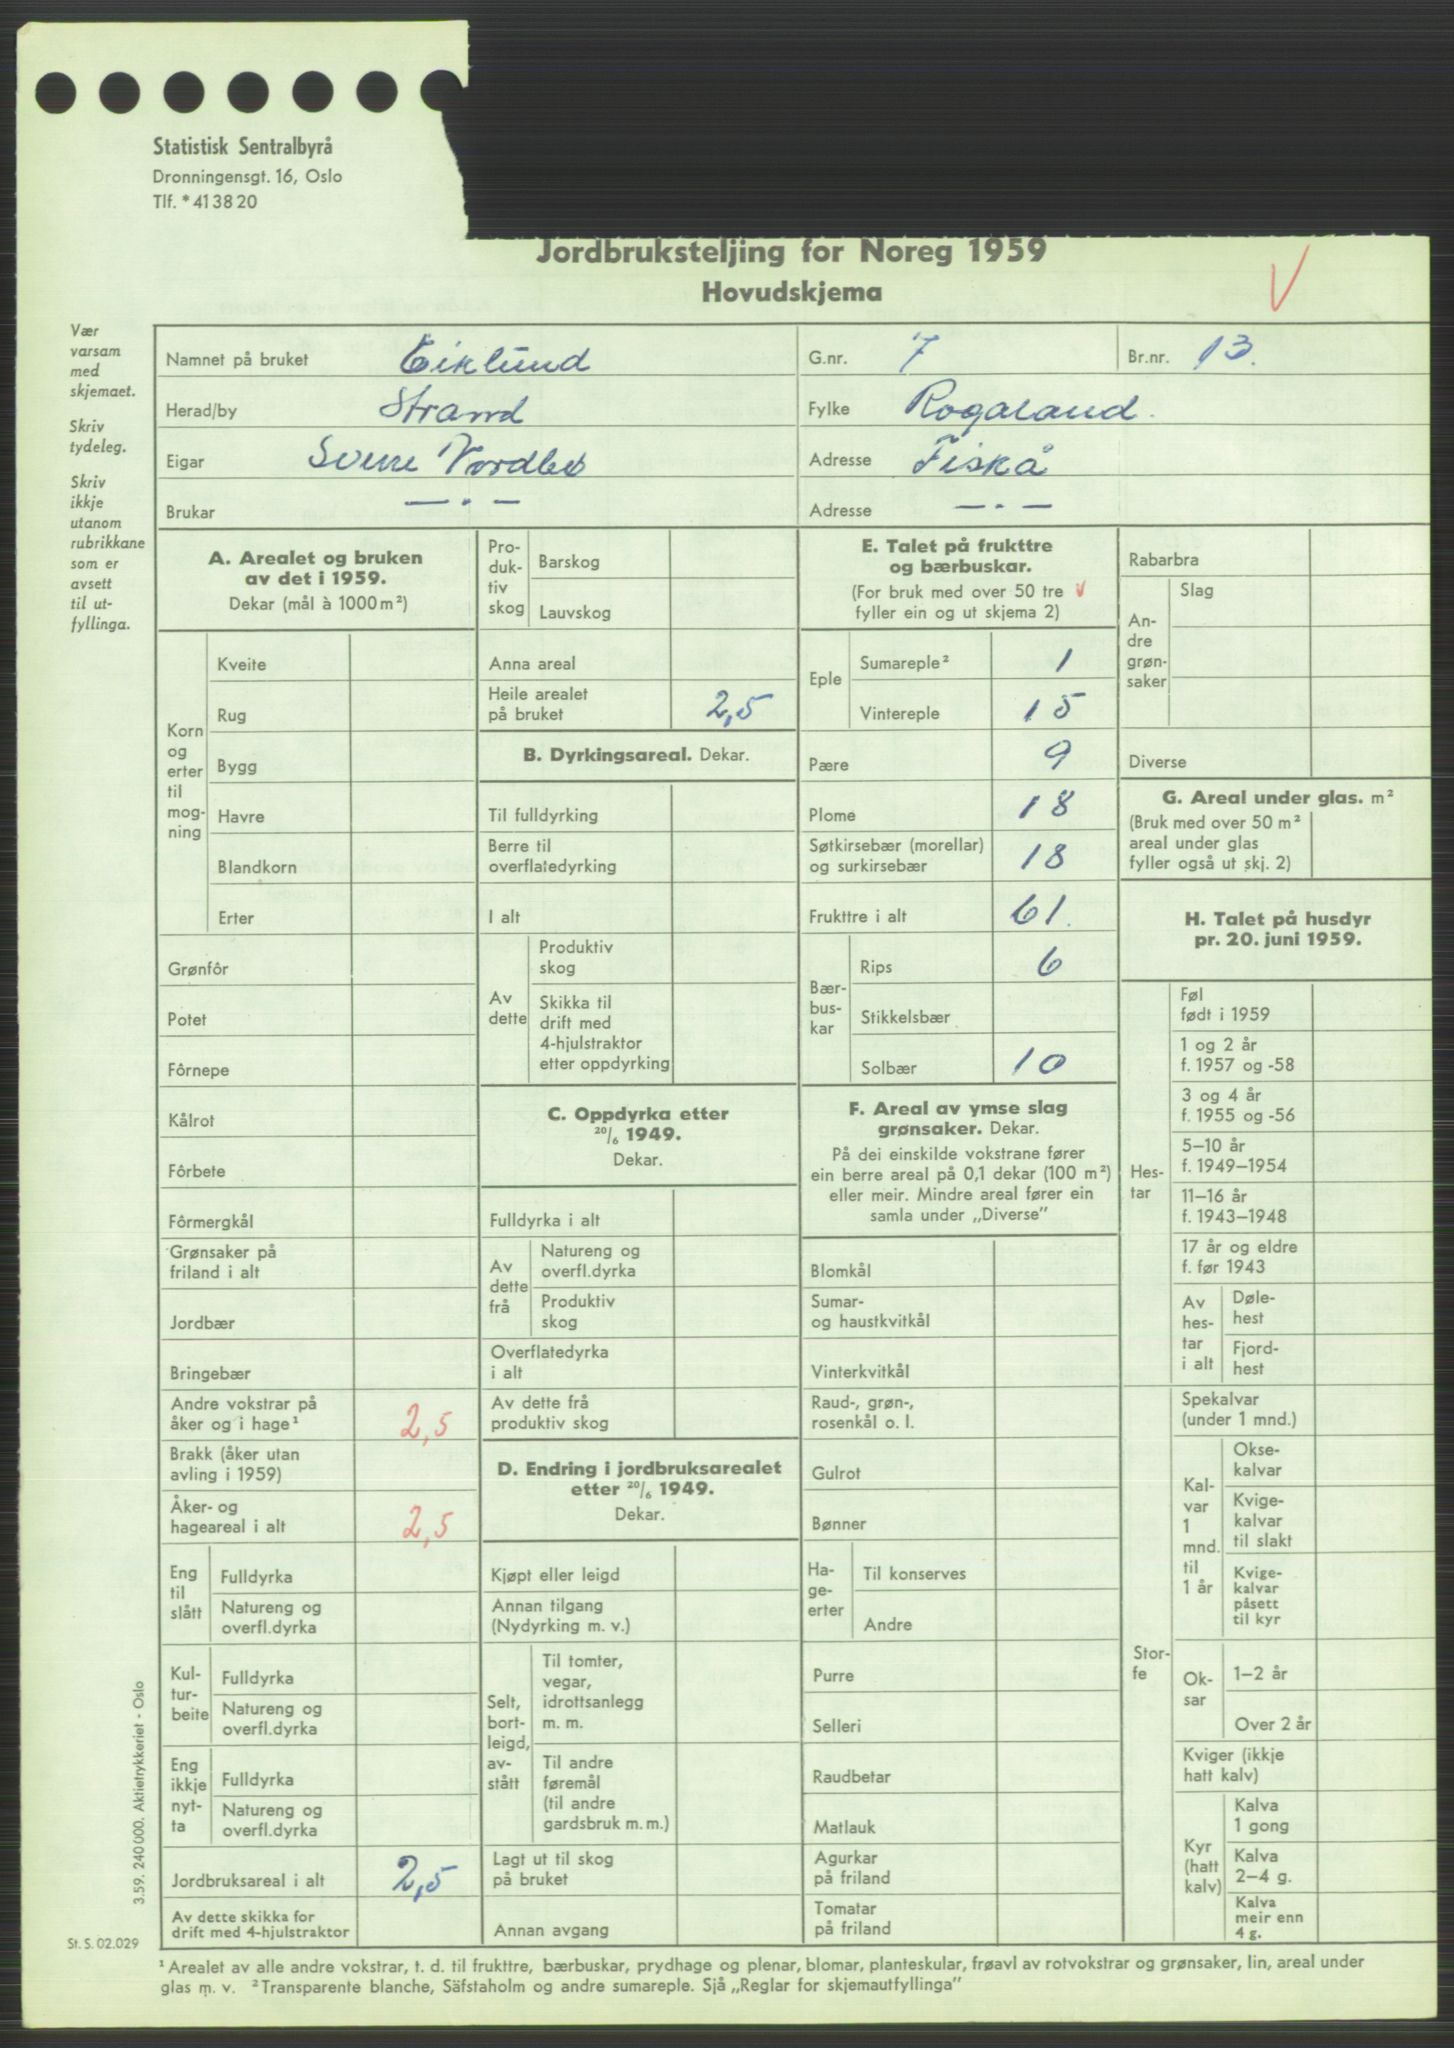 Statistisk Sentralbyrå
Dronningensgt. 16, Oslo
Tlf. * 41 38 20
Jordbruksteljing for Noreg 1959
Hovudskjema
V
Vær
varsam
med
skjemaet.
Skriv
tydeleg.
Skriv
ikkje
utanom
rubrikkane
som er
avsett
til ut-
fyllinga.
Namnet på bruket Eiklund G.nr. 7 Br.nr. 13.
Herad/by Strand Fylke Rogaland.
Eigar Nordbø Adresse Fiskå
Brukar — . — Adresse — . —
A. Arealet og bruken
av det i 1959.
Dekar (mål à 1000 m²)
Korn
og
erter
til
mog-
ning
Kveite
Rug
Bygg
Havre
Blandkorn
Erter
Grønfôr
Potet
Fôrnepe
Kålrot
Fôrbete
Fôrmergkål
Grønsaker på
friland i alt
Jordbær
Bringebær
Andre vokstrar på
åker og i hage¹ 2,5
Brakk (åker utan
avling i 1959)
Åker- og
hageareal i alt 2,5
Eng
til
slått
Fulldyrka
Natureng og
overfl.dyrka
Kul-
tur-
beite
Fulldyrka
Natureng og
overfl.dyrka
Eng
ikkje
nyt-
ta
Fulldyrka
Natureng og
overfl.dyrka
Jordbruksareal i alt 2,5
Av dette skikka for
drift med 4-hjulstraktor
Pro-
duk-
tiv
skog
Barskog
Lauvskog
Anna areal
Heile arealet
på bruket 2,5
B. Dyrkingsareal. Dekar.
Til fulldyrking
Berre til
overflatedyrking
I alt
Av
dette
Produktiv
skog
Skikka til
drift med
4-hjulstraktor
etter oppdyrking
C. Oppdyrka etter
20/6 1949.
Dekar.
Fulldyrka i alt
Av
dette
frå
Natureng og
overfl.dyrka
Produktiv
skog
Overflatedyrka
i alt
Av dette frå
produktiv skog
D. Endring i jordbruksarealet
etter 20/6 1949.
Dekar.
Kjøpt eller leigd
Annan tilgang
(Nydyrking m. v.)
Selt,
bort-
leigd,
av-
stått
Til tomter,
vegar,
idrottsanlegg
m. m.
Til andre
føremål
(til andre
gardsbruk m. m.)
Lagt ut til skog
på bruket
Annan avgang
E. Talet på frukttre
og bærbuskar.
(For bruk med over 50 tre V
fyller ein og ut skjema 2)
Eple
Sumareple² 1
Vintereple 15
Pære 9
Plome 18
Søtkirsebær (morellar)
og surkirsebær 18
Frukttre i alt 61.
Bær-
bus-
kar
Rips 6
Stikkelsbær
Solbær 10
F. Areal av ymse slag
grønsaker. Dekar.
På dei einskilde vokstrane fører
ein berre areal på 0,1 dekar (100 m²)
eller meir. Mindre areal fører ein
samla under „Diverse”
Blomkål
Sumar-
og haustkvitkål
Vinterkvitkål
Raud-, grøn-,
rosenkål o. l.
Gulrot
Bønner
Ha-
ge-
erter
Til konserves
Andre
Purre
Selleri
Raudbetar
Matlauk
Agurkar
på friland
Tomatar
på friland
Rabarbra
An-
dre
grøn-
saker
Slag
Diverse
G. Areal under glas. m²
(Bruk med over 50 m²
areal under glas
fyller også ut skj. 2)
H. Talet på husdyr
pr. 20. juni 1959.
Hes-
tar
Føl
født i 1959
1 og 2 år
f. 1957 og -58
3 og 4 år
f. 1955 og -56
5–10 år
f. 1949–1954
11–16 år
f. 1943–1948
17 år og eldre
f. før 1943
Av
hes-
tar
i alt
Døle-
hest
Fjord-
hest
Stor-
fe
Spekalvar
(under 1 mnd.)
Kal-
var
1
mnd.
til
1 år
Okse-
kalvar
Kvige-
kalvar
til slakt
Kvige-
kalvar
påsett
til kyr
Ok-
sar
1–2 år
Over 2 år
Kviger (ikkje
hatt kalv)
Kyr
(hatt
kalv)
Kalva
1 gong
Kalva
2–4 g.
Kalva
meir enn
4 g.
3.59. 240 000. Aktietrykkeriet - Oslo
St. S. 02.029
¹ Arealet av alle andre vokstrar, t. d. til frukttre, bærbuskar, prydhage og plenar, blomar, planteskular, frøavl av rotvokstrar og grønsaker, lin, areal under
glas m. v. ² Transparente blanche, Säfstaholm og andre sumareple. Sjå „Reglar for skjemautfyllinga”